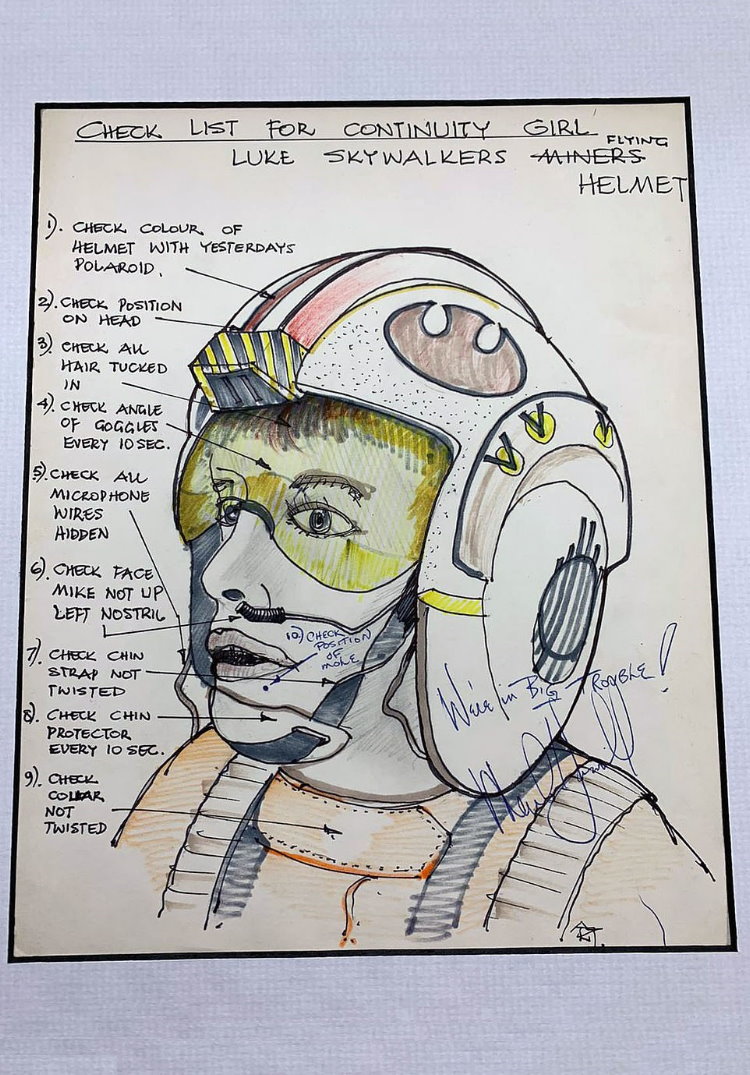 CHECK LIST FOR CONTINUITY GIRL
LUKE SKYWALKERS MINERS FLYING
HELMET
1). CHECK COLOUR OF
HELMET WITH YESTERDAYS
POLAROID.
2). CHECK POSITION
ON HEAD
3). CHECK ALL
HAIR TUCKED
IN
4). CHECK ANGLE
OF GOGGLES
EVERY 10 SEC.
5). CHECK ALL
MICROPHONE
WIRES
HIDDEN
6). CHECK FACE
MIKE NOT UP
LEFT NOSTRIL
7). CHECK CHIN
STRAP NOT
TWISTED
8). CHECK CHIN
PROTECTOR
EVERY 10 SEC.
9). CHECK
COLLAR
NOT
TWISTED
10) CHECK
POSITION
OF
MOLE
We're in BIG TROUBLE!